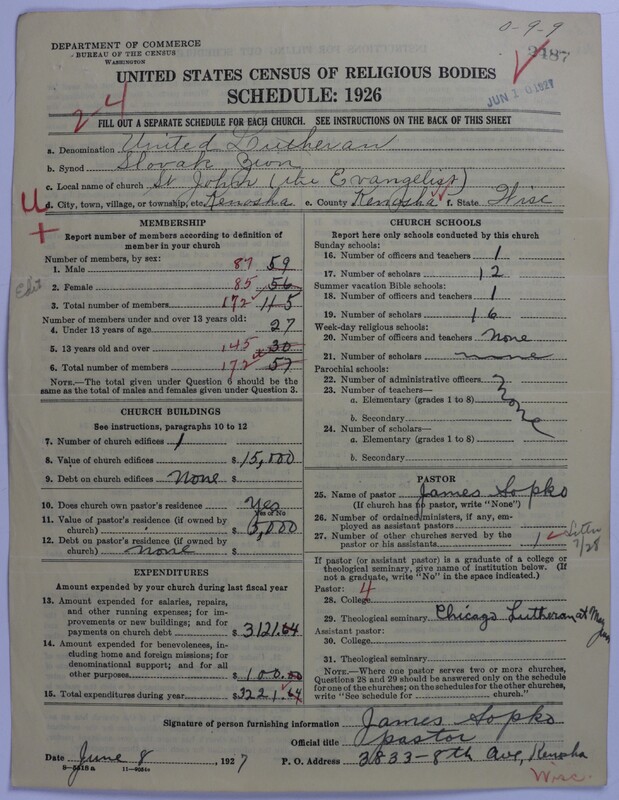 0-9-9
DEPARTMENT OF COMMERCE
BUREAU OF THE CENSUS
WASHINGTON
3187
UNITED STATES CENSUS OF RELIGIOUS BODIES
SCHEDULE: 1926
JUN 10 1927
2-4
FILL OUT A SEPARATE SCHEDULE FOR EACH CHURCH. SEE INSTRUCTIONS ON THE BACK OF THIS SHEET
a. Denomination United Lutheran
b. Synod Slovak Zion
c. Local name of church St John (the Evangelist)
d. City, town, village, or township, etc. Kenosha e. County Kenosha f. State Wisc
U
+
MEMBERSHIP
Report number of members according to definition of
member in your church
Number of members, by sex:
1. Male 87 59
2. Female 85 56
3. Total number of members 172 115
Number of members under and over 13 years old:
4. Under 13 years of age 27
5. 13 years old and over 145 30
6. Total number of members 172 57
NOTE.—The total given under Question 6 should be the
same as the total of males and females given under Question 3.
CHURCH BUILDINGS
See instructions, paragraphs 10 to 12
7. Number of church edifices 1
8. Value of church edifices $15,000
9. Debt on church edifices None $
10. Does church own pastor's residence Yes
Yes or No
11. Value of pastor's residence (if owned by
church) $5,000
12. Debt on pastor's residence (if owned by
church) none $
EXPENDITURES
Amount expended by your church during last fiscal year
13. Amount expended for salaries, repairs,
and other running expenses; for im-
provements or new buildings; and for
payments on church debt $3121.64
14. Amount expended for benevolences, in-
cluding home and foreign missions; for
denominational support; and for all
other purposes $100.00
15. Total expenditures during year $3221.64
CHURCH SCHOOLS
Report here only schools conducted by this church
Sunday schools:
16. Number of officers and teachers 1
17. Number of scholars 12
Summer vacation Bible schools:
18. Number of officers and teachers 1
19. Number of scholars 16
Week-day religious schools:
20. Number of officers and teachers None
21. Number of scholars none
Parochial schools:
22. Number of administrative officers
23. Number of teachers—
a. Elementary (grades 1 to 8)
None
b. Secondary
24. Number of scholars—
a. Elementary (grades 1 to 8)
b. Secondary
PASTOR
25. Name of pastor James Sopko
(If church has no pastor, write "None")
26. Number of ordained ministers, if any, em-
ployed as assistant pastors
27. Number of other churches served by the
pastor or his assistants 1 Letter
7/28
If pastor (or assistant pastor) is a graduate of a college or
theological seminary, give name of institution below. (If
not a graduate, write "No" in the space indicated.)
Pastor:
28. College 4
29. Theological seminary Chicago Lutheran at
Assistant pastor:
30. College
31. Theological seminary
NOTE.—Where one pastor serves two or more churches,
Questions 28 and 29 should be answered only on the schedule
for one of the churches; on the schedules for the other churches,
write "See schedule for church."
Signature of person furnishing information James Sopko
Official title pastor
Date June 8, 1927 P. O. Address 3833-8th Ave, Kenosha
Wisc.